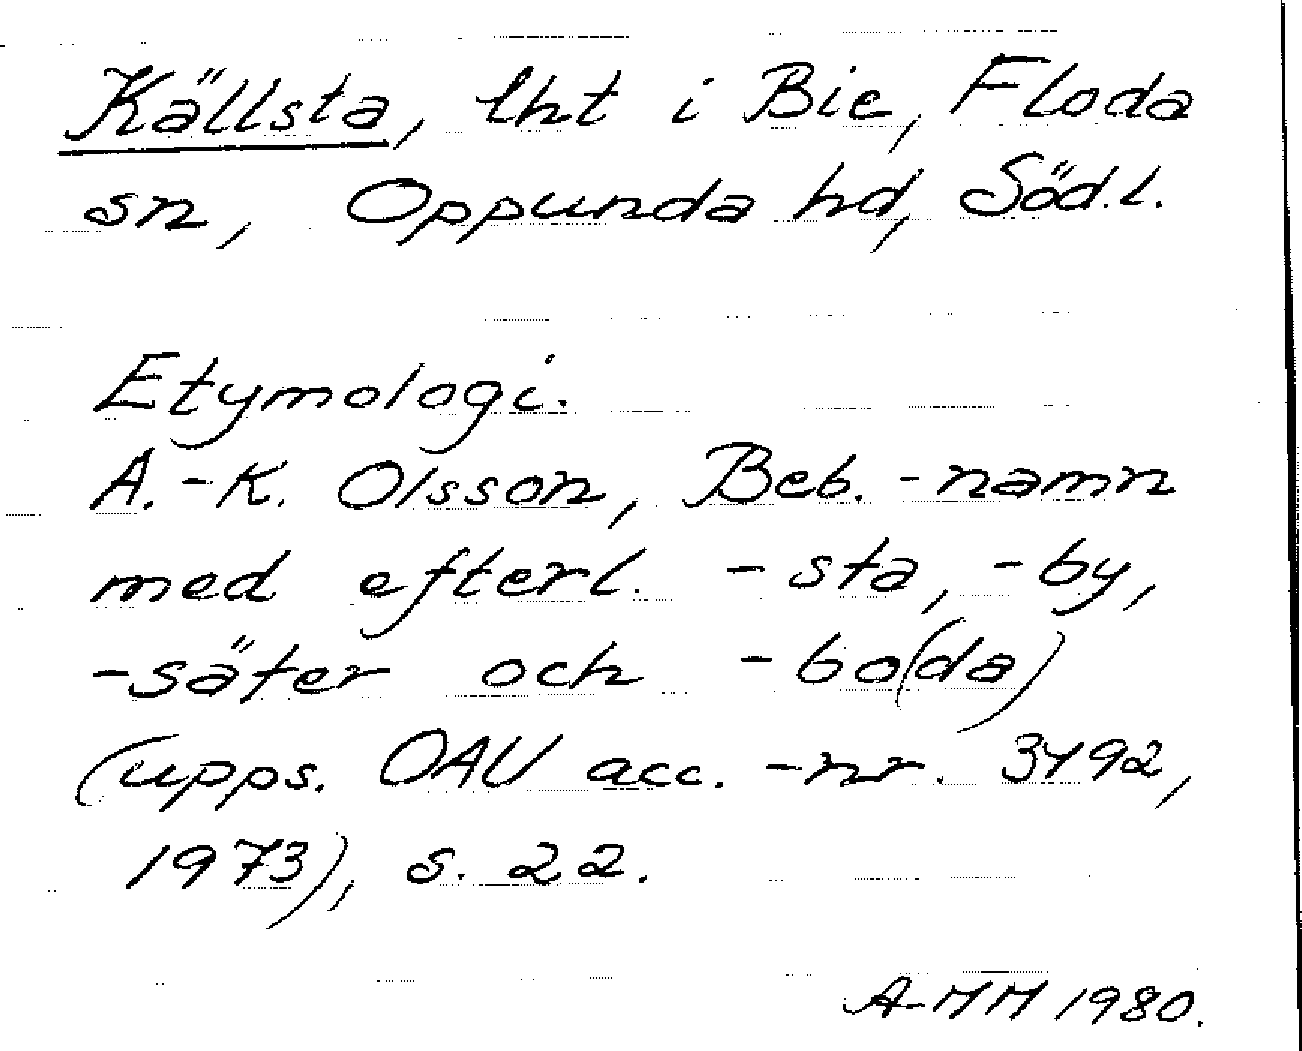 Källsta, lht i Bie, Floda
sn, Oppunda hd, Söd.l.
Etymologi.
A.-K. Olsson, Beb.-namn
med efterl. -sta, -by,
-säter och -bo(da)
(upps. OAU acc.-nr. 3492,
1973), s. 22.
A-MH 1980.